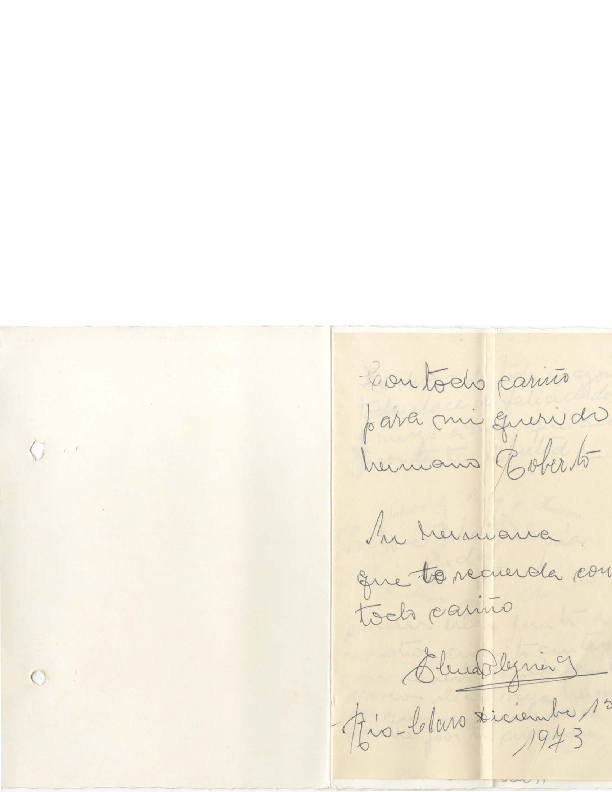 Con todo cariño
para mi querido
hermano Roberto
Su hermana
que te recuerda con
todo cariño
Elena
Río-Claro Diciembre
1973